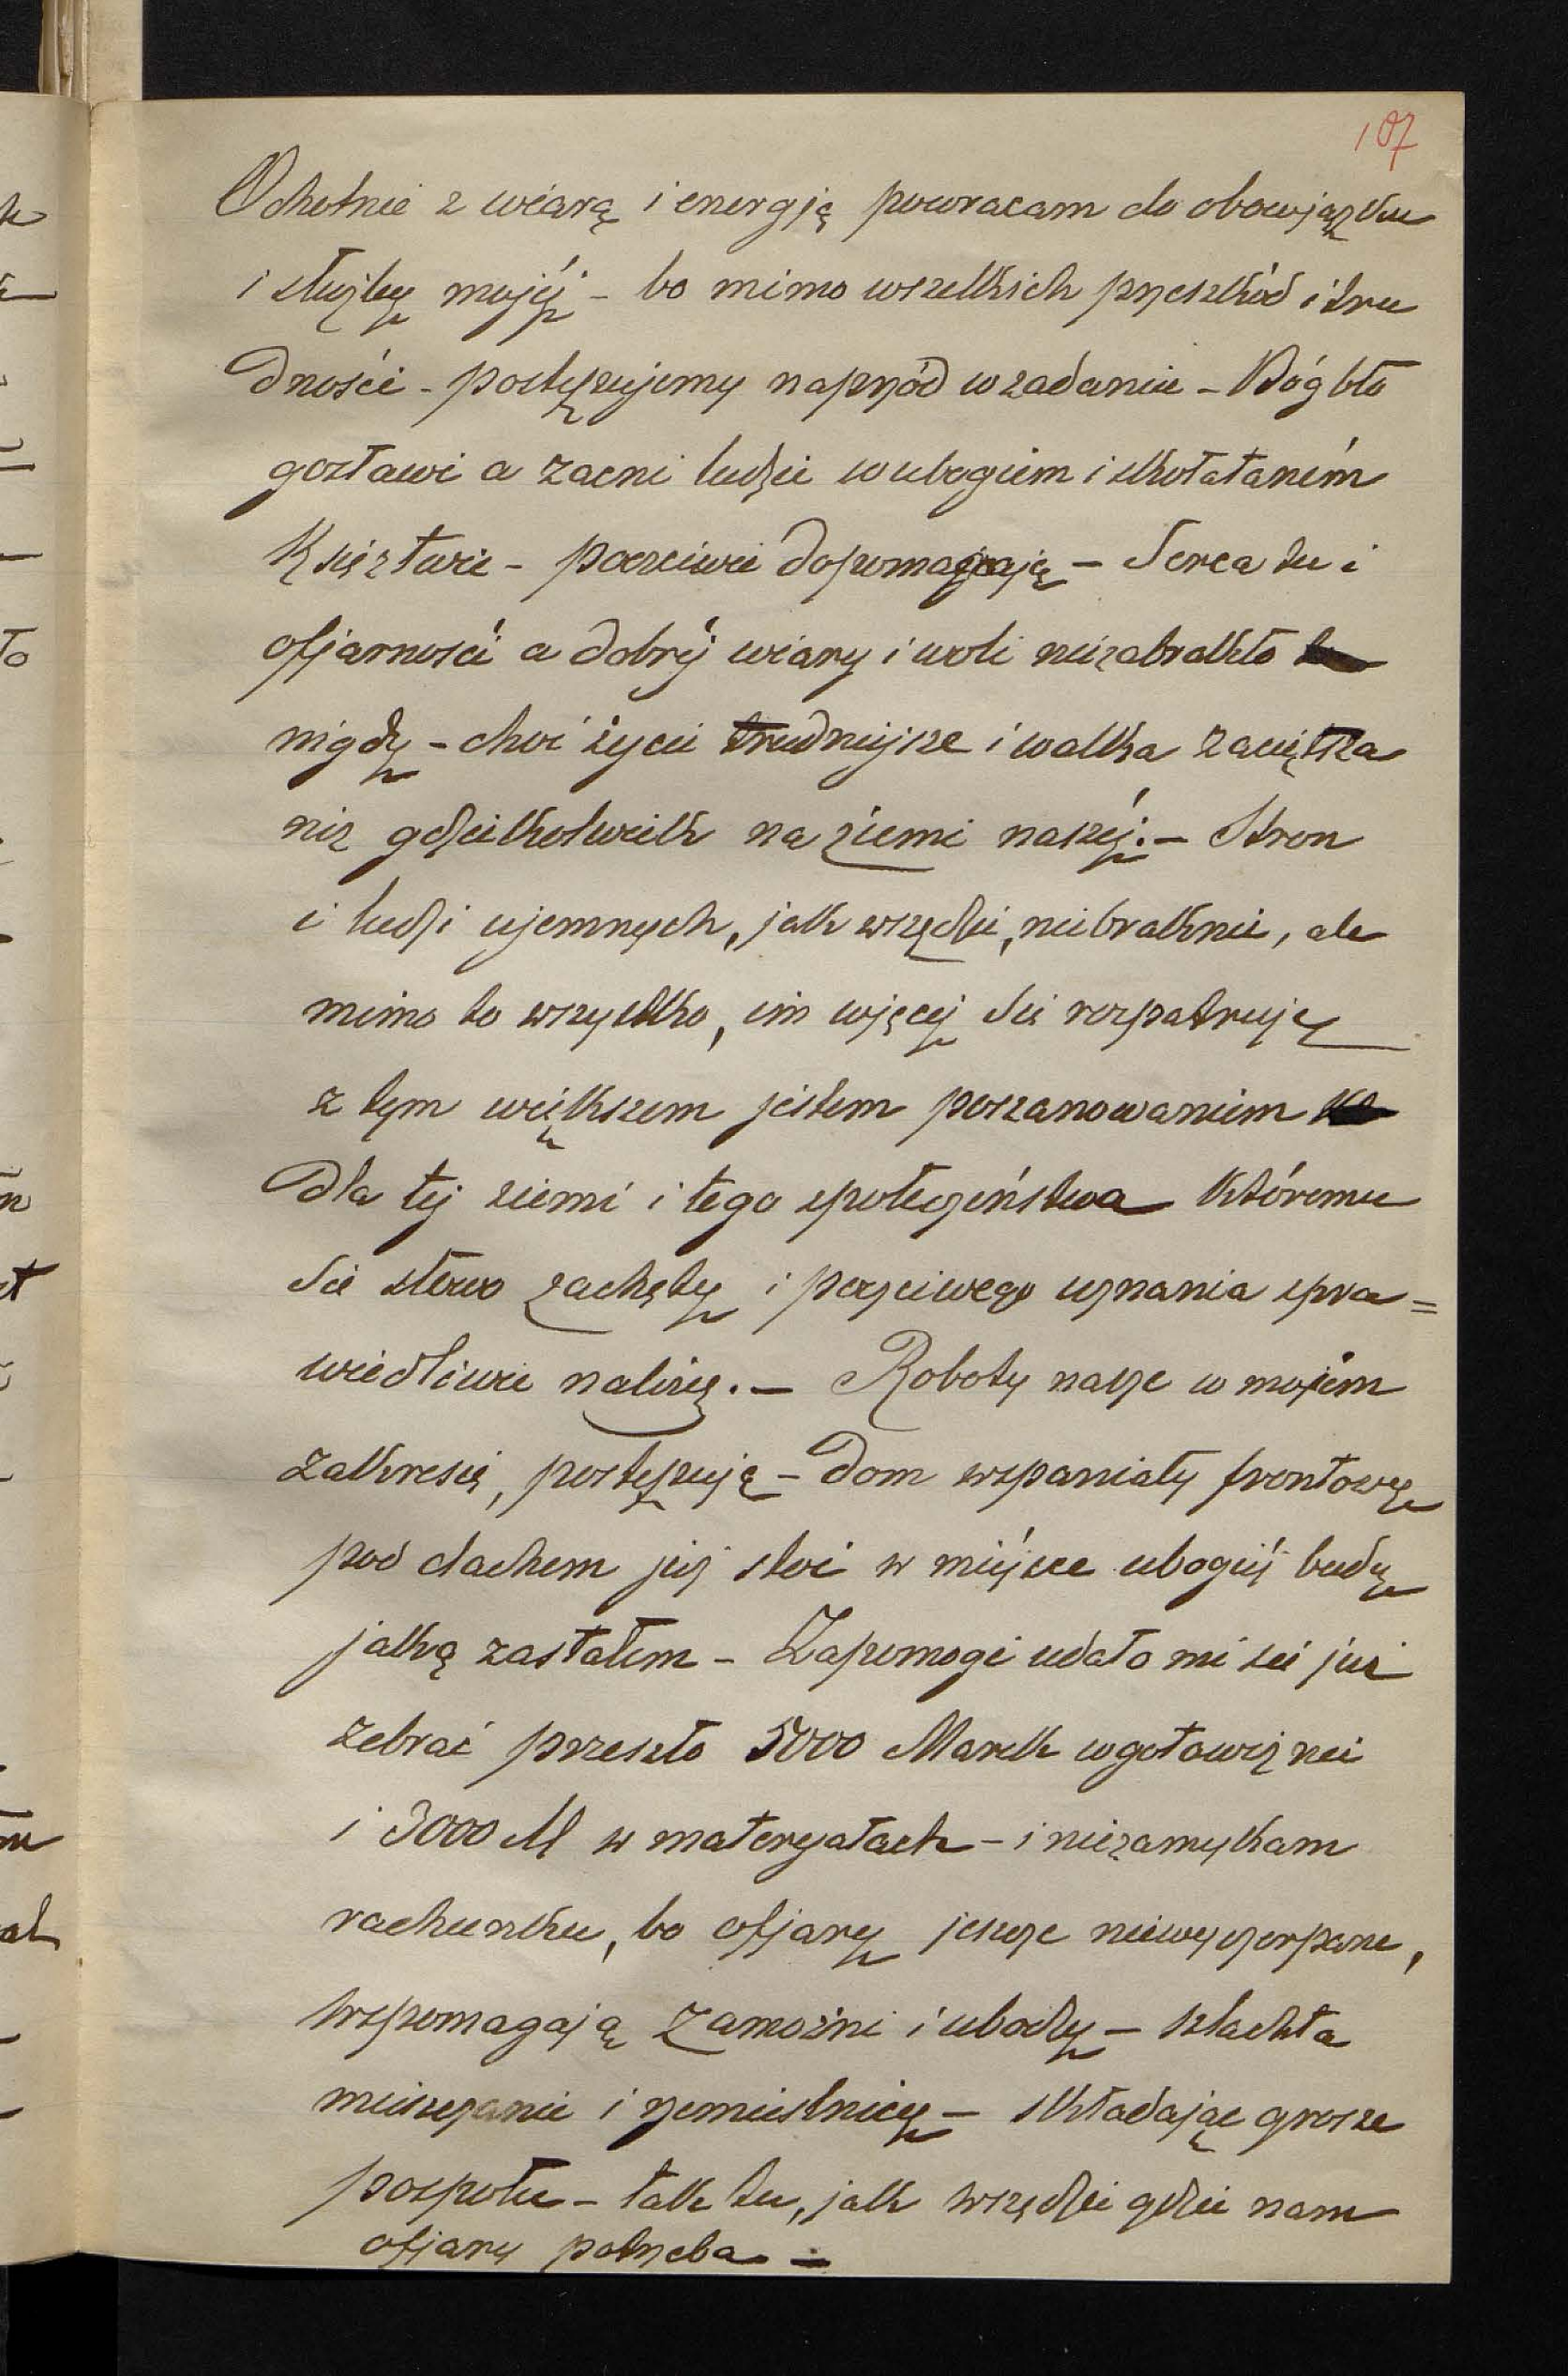 107
Ochotnie z wiarą i energją powracam do obowjązku
i służby mojéj – bo mimo wszelkich przeszkód i tru
dności – postępujemy naprzód w zadaniu – Bóg bło
gosławi a zacni ludzie w ubogiem i skołataném
Księztwie – poczciwie dopomagają – Serca tu i
ofjarności a dobréj wiary i woli niezabrakło
nigdy – choć życie trudniejsze i walka zaciętsza
niż gdzielkolwiek na ziemi naszéj. – Stron
i ludzi ujemnych, jak wszędzie, niebraknie, ale
mimo to wszystko, im więcéj Się rozpatruję
z tym większem jestem poszanowaniem
dla téj ziemi i tego społeczeństwa któremu
Się słowo zachęty i poczciwego uznania spra=
wiedliwie należy. – Roboty nasze w mojém
zakresie, postępują – Dom wspaniały frontowy
pod dachem już stoi w miéjsce ubogiéj budy
jaką zastałem – Zapomogi udało mi się już
zebrać przeszło 5000 Marek w gotowiznie
i 3000 M w materyałach – i niezamykam
rachunku, bo ofjary jeszcze niewyczerpane,
wspomagają zamożni i ubodzy – szlachta
mieszczanie i rzemieślnicy – składając grosze
pospołu – tak tu, jak wszędzie gdzie nam
ofjary potrzeba –